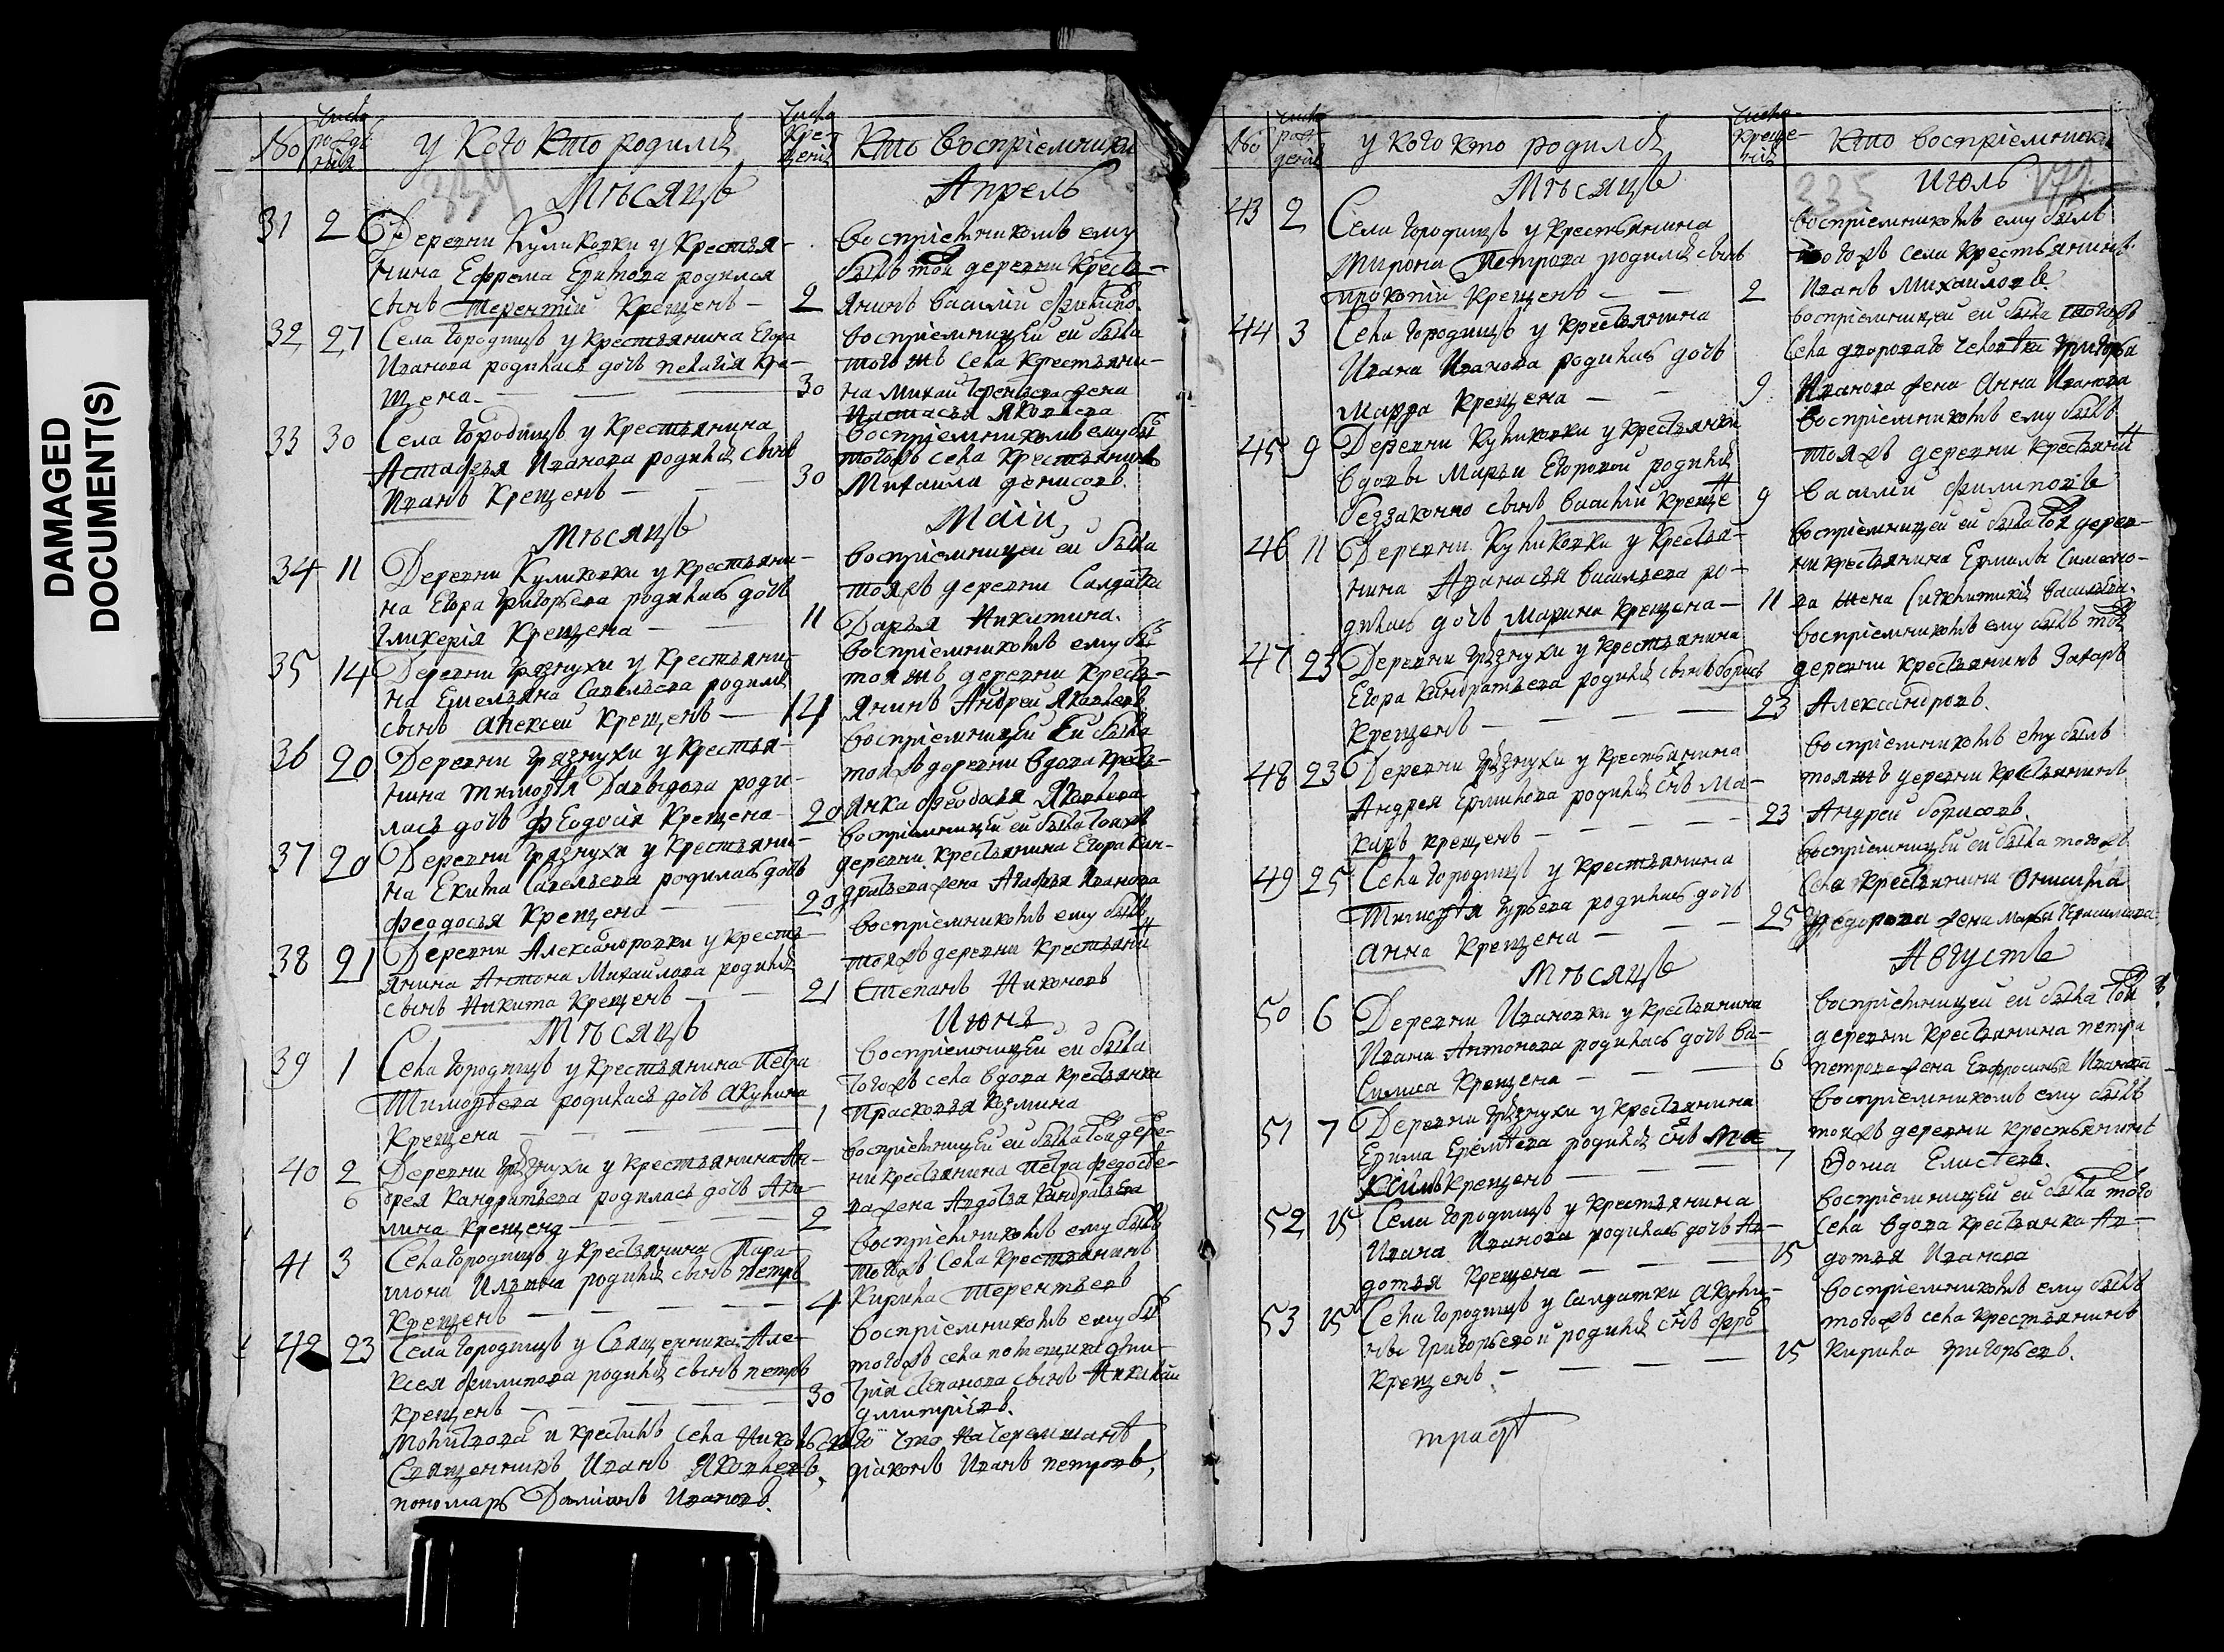 DAMAGED
DOCUMENT(S)
No
числа рожде ния
у кого кто родился
числа кре щения
кто восприемники
Месяцъ Апрель
31 2 Деревни Куликовки у крестья-
нина Ефрема Еримова родился
сынъ Терентiй крещенъ — 2
восприемникомъ ему
былъ той деревни кресть-
янинъ василiй Филипо.
32 27 Села Городищъ у крестьянина Егора
Иванова родилась дочь пелагiя кре-
щена — 30
восприемницей ей была
того жъ села крестьяни-
на Михаи Терентьева жена
Настасья Яковлева
33 30 Села Городищъ у крестьянина
Астафья Иванова родился сынъ
Иванъ крещенъ — 30
восприемникомъ ему бы
тогожъ села крестьянинъ
Михаила денисовъ.
Месяцъ Маiи
34 11 Деревни Куликовки у крестьяни-
на Егора Григорьева родилась дочь
Гликерiя крещена — 11
восприемницей ей была
тояжъ деревни Салдатка
Дарья Никитина.
35 14 Деревни Грязнухи у крестьяни-
на Емельяна Савельева родился
сынъ алексей крещенъ — 14
восприемникомъ ему бы
тояжъ деревни кресть-
янинъ Андрей Яковлевъ
36 20 Деревни Грязнухи у крестья-
нина тимофея Давыдова роди-
лась дочь феодосiя крещена 20
восприемницей ей была
тояжъ деревни вдова кресть-
янка феодосья Яковлева
37 20 Деревни Грязнухи у крестьяни-
на Екима Савельева родилась дочь
феодосья крещена — 20
восприемницей ей была тояжъ
деревни крестьянина Егора Кан-
дратьева жена Агафья Иванова
38 21 Деревни Александровки у кресть-
янина Антона Михайлова родился
сынъ Никита крещенъ — 21
восприемникомъ ему былъ
тояжъ деревни крестьянинъ
Степанъ Никоновъ
Месяцъ Июня
39 1 Села Городищъ у крестьянина Петра
Тимофеева родилась дочь Акулина
крещена — 1
восприемницей ей была
тогожъ села вдова крестьянка
Прасковья Козмина
40 2 Деревни Грязнухи у крестьянина Ан-
дрея Кандратьева родилась дочь Аку-
лина крещена — 2
восприемницей ей была той дере-
ни крестьянина Петра федосее-
ва жена Авдотья Кандратьева
41 3 Села Городищъ у крестьянина Пара-
мона Ильина родился сынъ петръ
крещенъ — 4
восприемникомъ ему былъ
тогожъ села крестьянинъ
Кирила Терентьевъ
42 23 Села Городищъ у Священника Але-
ксея филипова родился сынъ петръ
крещенъ — 30
восприемникомъ ему бы
тогожъ села помещика дми-
трiя степанова сынъ Николай
дмитрiевъ.
молитвовалъ и крестилъ села Никольского что на Черемшане
Священникъ Иванъ Яковлевъ, дiаконъ Иванъ петровъ,
пономарь Дамианъ Ивановъ.
No
числа рож дения
у кого кто родился
числа креще ния
кто восприемники
335
Месяцъ Июль
43 2 Села Городищъ у крестьянина
Мирона Петрова родился сынъ
прокопiй крещенъ — 2
восприемникомъ ему былъ
тогожъ села крестьянинъ
Иванъ Михайловъ.
44 3 Села Городищъ у крестьянина
Ивана Иванова родилась дочь
Марфа крещена — 9
восприемницей ей была тогожъ
села двороваго человека григорья
Иванова жена Анна Иванова
45 9 Деревни Куликовки у крестьянки
вдовы Марьи Егоровой родился
беззаконно сынъ василiй креще 9
восприемникомъ ему былъ
тояжъ деревни крестьянинъ
василiй филиповъ
46 11 Деревни Куликовки у крестья-
нина Афанасья васильева ро-
дилась дочь Марина крещена — 11
восприемницей ей была той дерев-
ни крестьянина Ермилы Симено-
ва жена васильева.
47 23 Деревни Грязнухи у крестьянина
Егора Кандратьева родился сынъ борисъ
крещенъ — 23
восприемникомъ ему былъ той
деревни крестьянинъ Захаръ
Александровъ.
48 23 Деревни Грязнухи у крестьянина
Андрея Ермилова родился снъ Ма-
каръ крещенъ — 23
восприемникомъ ему былъ
тояжъ деревни крестьянинъ
Андрей борисовъ.
49 25 Села Городищъ у крестьянина
Тимофея Гурьева родилась дочь
анна крещена — 25
восприемницей ей была тогожъ
села крестьянина Онисима
федорова жена Марья Герасимова
Месяцъ Августъ
50 6 Деревни Ивановки у крестьянина
Ивана Антонова родилась дочь ва-
силиса крещена — 6
восприемницей ей была той
деревни крестьянина петра
петрова жена Ефросинья Иванова
51 7 Деревни Грязнухи у крестьянина
Ефима Еремеева родился снъ Ма-
ксимъ крещенъ — 7
восприемникомъ ему былъ
тояжъ деревни крестьянинъ
Фома Елисеевъ.
52 15 Села Городищъ у крестьянина
Ивана Иванова родилась дочь Ав-
дотья крещена — 15
восприемницей ей была того
села вдова крестьянка Ав-
дотья Иванова
53 15 Села Городищъ у салдатки акули-
ны григорьевой родился снъ фролъ
крещенъ. — 15
восприемникомъ ему былъ
тогожъ села крестьянинъ
Кирила григорьевъ.